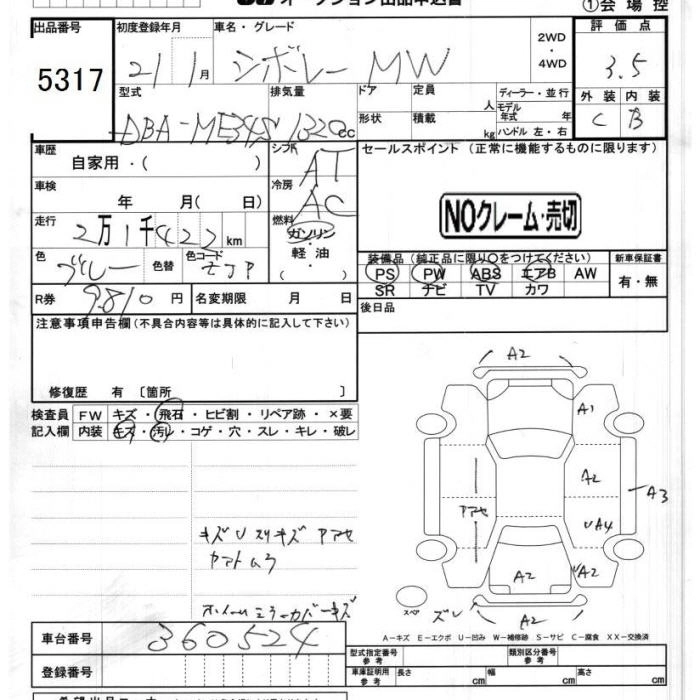 オークション出品申込書
①会場控
出品番号 初度登録年月 車名・グレード 2WD・4WD 評価点
5317 21 1月 シボレー MW 3.5
型式 排気量 ドア 定員 人 ディーラー・並行 外装 内装
DBA-ME34S 1320cc 形状 積載 kg モデル年式 年 C B
ハンドル 左・右
車歴 自家用・( ) シフト AT セールスポイント (正常に機能するものに限ります)
車検 年 月( 日) 冷房 AC
NOクレーム・売切
走行 2万1千422km 燃料 ガソリン・軽油・( )
色 ブルー 色替 色コード ZJP 装備品(純正品に限り○をつけてください) 新車保証書
PS PW ABS エアB AW 有・無
R券 9810円 名変期限 月 日 SR ナビ TV カワ
後日品
注意事項申告欄(不具合内容等は具体的に記入して下さい)
修復歴 有 〔箇所 〕
検査員 FW キズ・飛石・ヒビ割・リペア跡・×要
記入欄 内装 キズ・汚レ・コゲ・穴・スレ・キレ・破レ
A2
A1
A2
A3
アアセ
UA4
A2
UA2
A2
スペア
ズレ
キズ U スリキズ アアセ
ヤマトムラ
ホイール ミラーカバーキズ
A-キズ E-エクボ U-凹み W-補修跡 S-サビ C-腐食 XX-交換済
車台番号 360524
登録番号
型式指定番号 参考 類別区分番号 参考
車庫証明用 参考 長さ cm 幅 cm 高さ cm